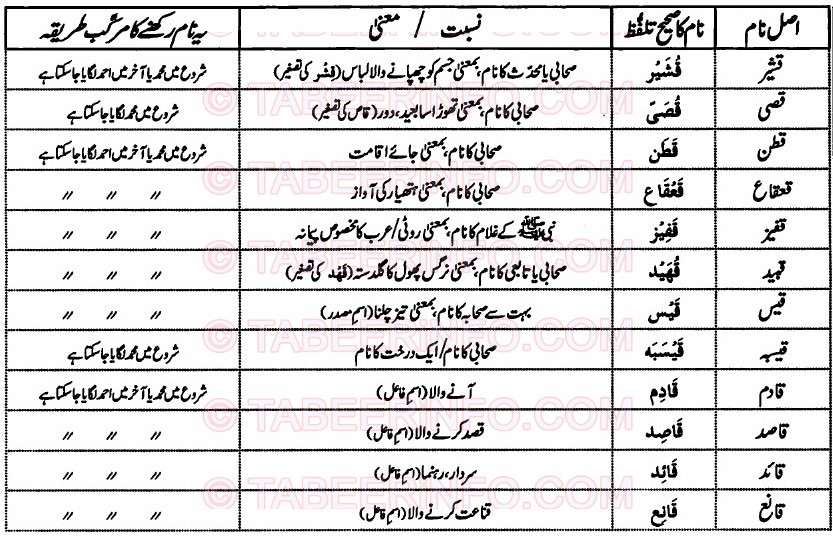 اصل نام | نام کا صحیح تلفّظ | نسبت / معنیٰ | یہ نام رکھنے کا مرکّب طریقہ
قشیر | قُشَیْر | صحابی یا محدّث کا نام، بمعنیٰ جسم کو چھپانے والا لباس (قِشْر کی تصغیر) | شروع میں محمد یا آخر میں احمد لگایا جاسکتا ہے
قصی | قُصَیّ | صحابی کا نام، بمعنیٰ تھوڑا سا بعید، دور (قاص کی تصغیر) | شروع میں محمد لگایا جاسکتا ہے
قطن | قَطَن | صحابی کا نام، بمعنیٰ جائے اقامت | شروع میں محمد یا آخر میں احمد لگایا جاسکتا ہے
قعقاع | قَعْقَاع | صحابی کا نام، بمعنیٰ ہتھیار کی آواز | 〃 〃 〃
قفیز | قَفِیْز | نبی ﷺ کے غلام کا نام، بمعنیٰ روٹی/عرب کا مخصوص پیمانہ | 〃 〃 〃
قہید | قُهَیْد | صحابی یا تابعی کا نام، بمعنیٰ نرگس پھول کا گلدستہ (قَهْد کی تصغیر) | 〃 〃 〃
قیس | قَیْس | بہت سے صحابہ کا نام، بمعنیٰ تیز چلنا (اسم مصدر) | 〃 〃 〃
قیسبہ | قَیْسَبَه | صحابی کا نام/ایک درخت کا نام | شروع میں محمد لگایا جاسکتا ہے
قادم | قَادِم | آنے والا (اسم فاعل) | شروع میں محمد یا آخر میں احمد لگایا جاسکتا ہے
قاصد | قَاصِد | قصد کرنے والا (اسم فاعل) | 〃 〃 〃
قائد | قَائِد | سردار، رہنما (اسم فاعل) | 〃 〃 〃
قانع | قَانِع | قناعت کرنے والا (اسم فاعل) | 〃 〃 〃
© TABEERINFO.COM
© TABEERINFO.COM
© TABEERINFO.COM
© TABEERINFO.COM
© TABEERINFO.COM
© TABEERINFO.COM